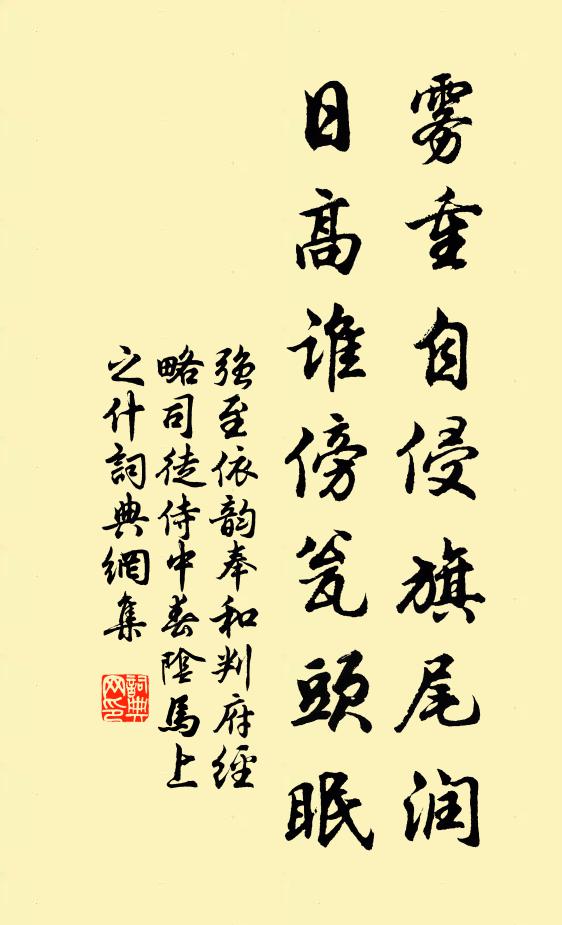 雾重自侵旗尾润
日高谁傍瓮头眠
强至依韵奉和判府經
略司徒侍中春陰馬上
之什詞典網集
詞典网印